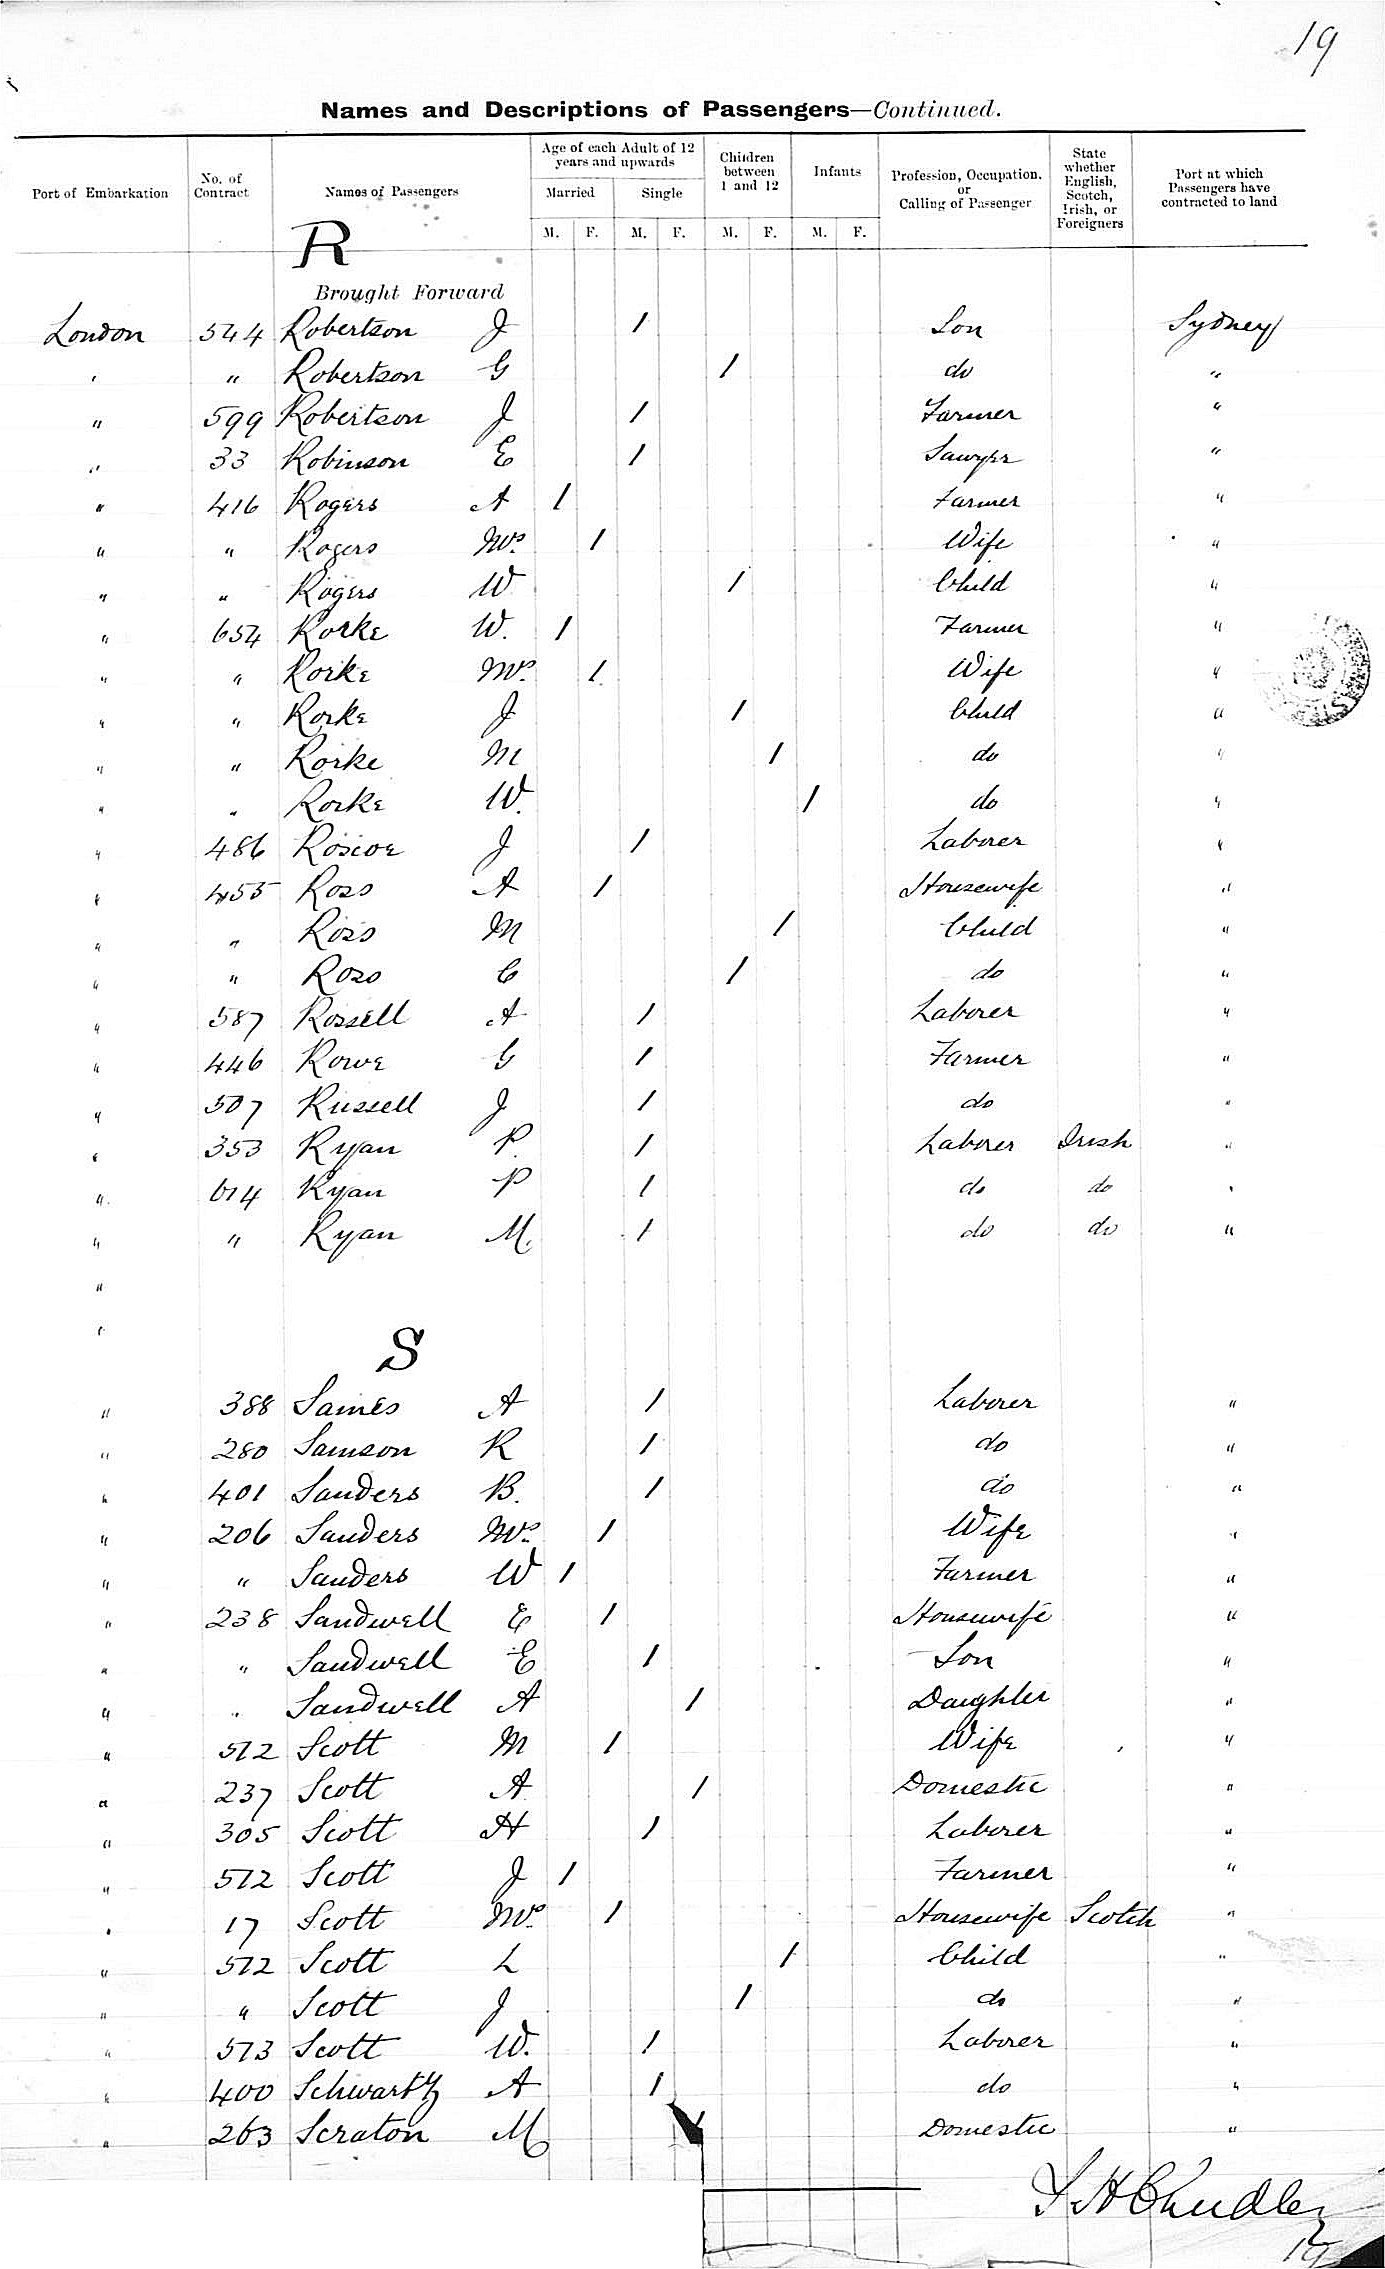 19
Names and Descriptions of Passengers—Continued.
Port of Embarkation No. of Contract Names of Passengers Age of each Adult of 12 years and upwards Married M. F. Single M. F. Children between 1 and 12 M. F. Infants M. F. Profession, Occupation, or Calling of Passenger State whether English, Scotch, Irish, or Foreigners Port at which Passengers have contracted to land
R
Brought Forward
London 544 Robertson J 1 Son Sydney
" " Robertson G 1 do "
" 599 Robertson J 1 Farmer "
" 33 Robinson E 1 Sawyer "
" 416 Rogers A 1 Farmer "
" " Rogers Mrs 1 Wife "
" " Rogers W 1 Child "
" 654 Rorke W. 1 Farmer "
" " Rorke Mrs 1 Wife "
" " Rorke J 1 Child "
" " Rorke M 1 do "
" " Rorke W. 1 do "
" 486 Roscoe J 1 Laborer "
" 455 Ross A 1 Housewife "
" " Ross M 1 Child "
" " Ross C 1 do "
" 587 Rossell A 1 Laborer "
" 446 Rowe G 1 Farmer "
" 507 Russell J 1 do "
" 353 Ryan P. 1 Laborer Irish "
" 614 Ryan P 1 do do "
" " Ryan M. 1 do do "
"
"
S
" 388 Saines A 1 Laborer "
" 280 Samson R 1 do "
" 401 Sanders B. 1 do "
" 206 Sanders Mrs 1 Wife "
" " Sanders W 1 Farmer "
" 238 Sandwell E 1 Housewife "
" " Sandwell E 1 Son "
" " Sandwell A 1 Daughter "
" 512 Scott M 1 Wife "
" 237 Scott A 1 Domestic "
" 305 Scott H 1 Laborer "
" 512 Scott J 1 Farmer "
" 17 Scott Mrs 1 Housewife Scotch "
" 512 Scott L 1 Child "
" " Scott J 1 do "
" 513 Scott W. 1 Laborer "
" 400 Schwartz A 1 do "
" 263 Scraton M Domestic "
19